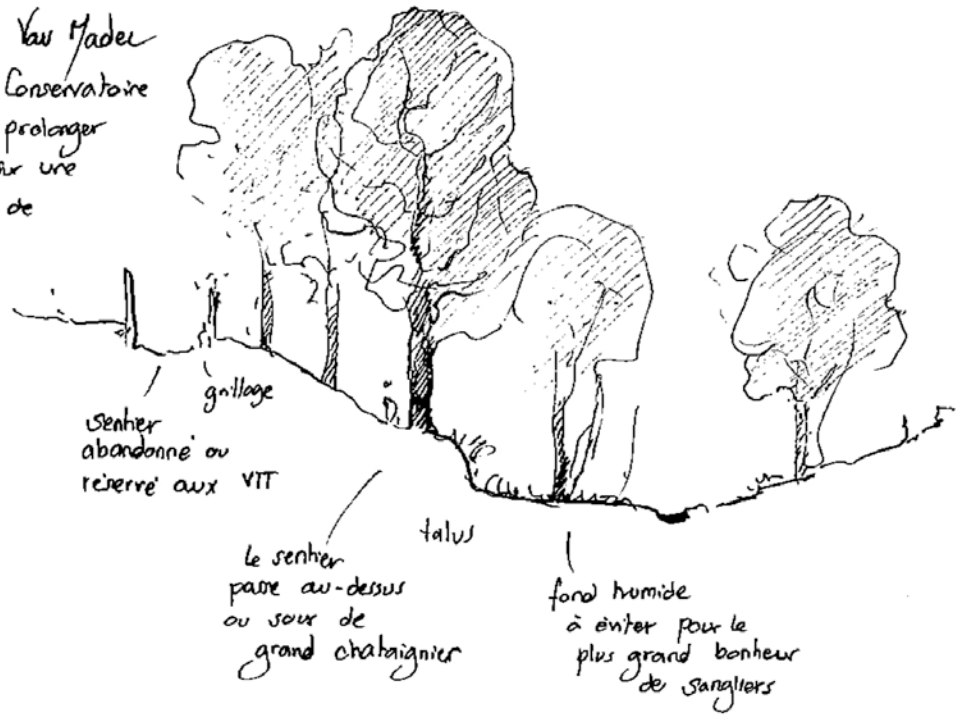 Vau Madec
Conservatoire
prolonger
sur une
de
grillage
sentier
abandonné ou
réservé aux VTT
talus
le sentier
passe au-dessus
ou sous de
grand chataignier
fond humide
à éviter pour le
plus grand bonheur
de sangliers